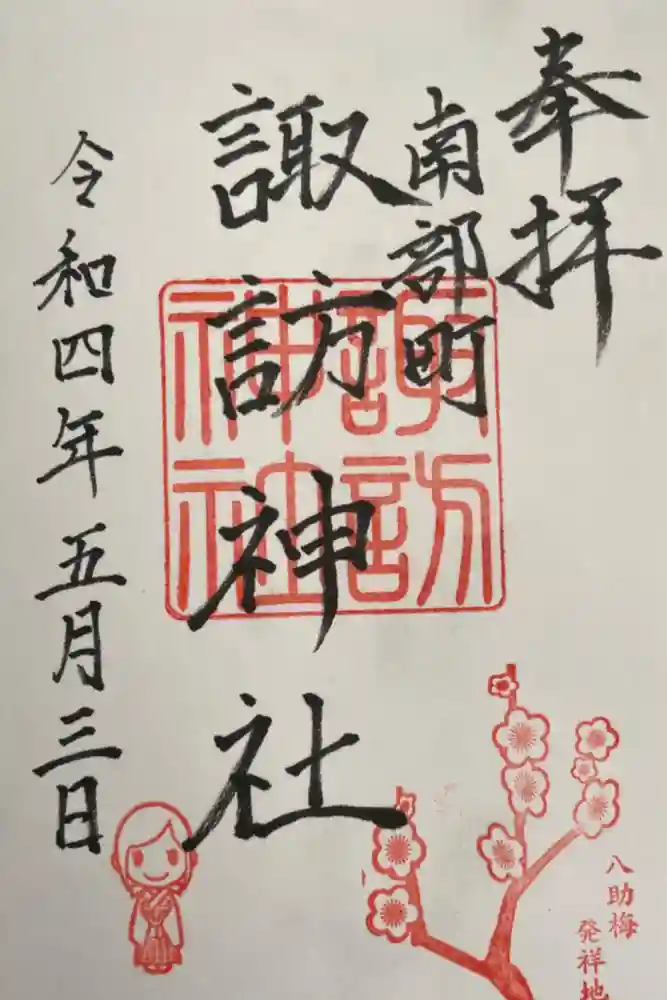 奉拝
南部町
諏訪神社
諏訪
神社
令和四年五月三日
八助梅
発祥地